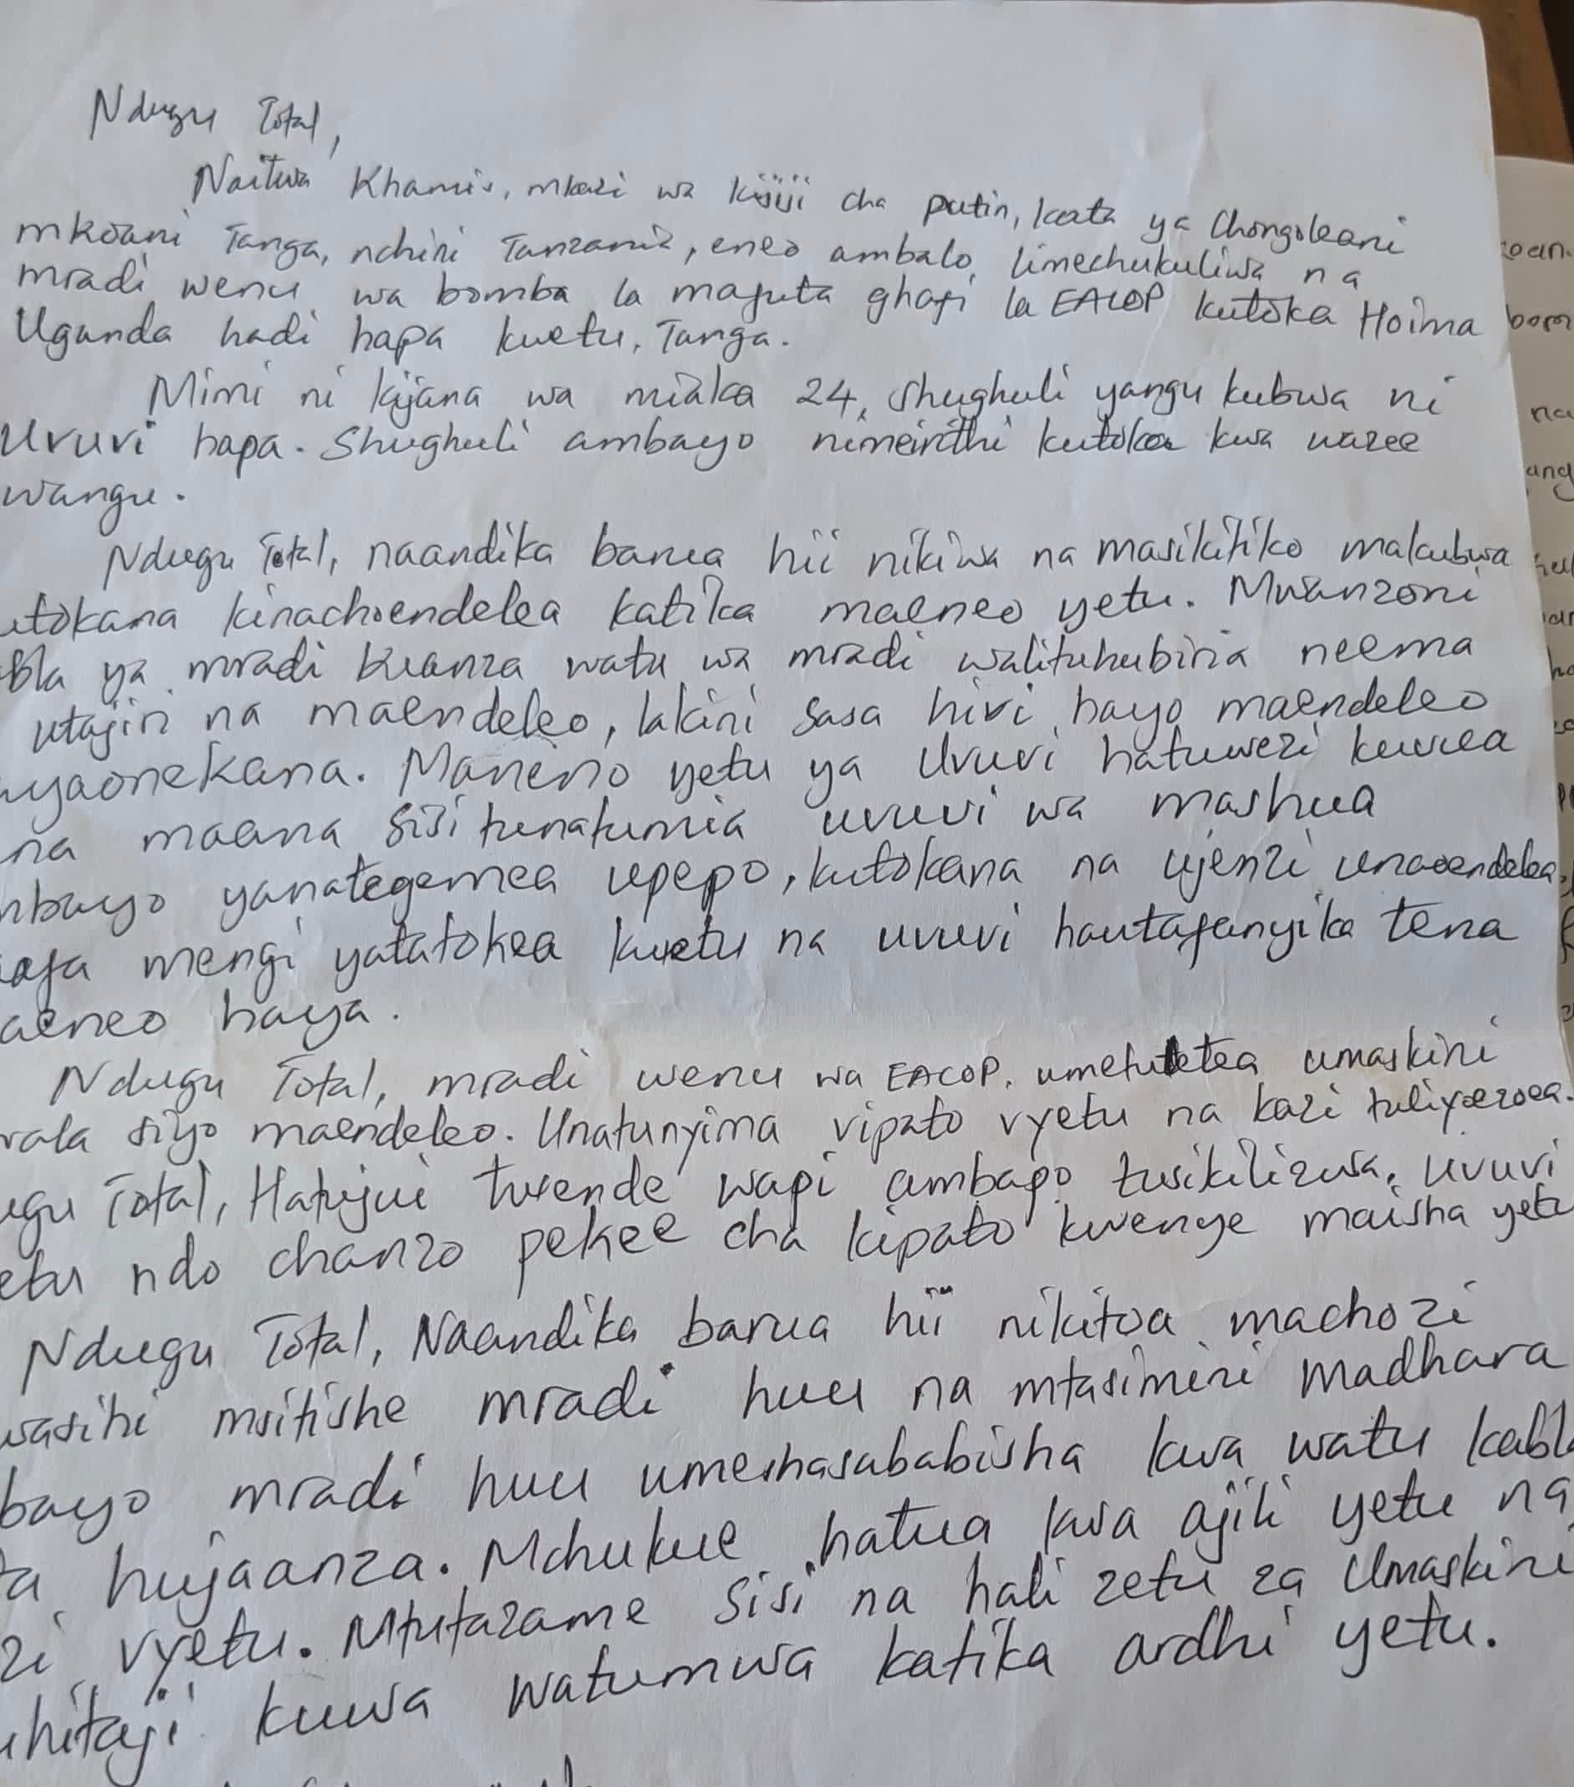 Ndugu Total,
Naitwa Khamis, mkazi wa kijiji cha putin, kata ya Chongoleani
mkoani Tanga, nchini Tanzania, eneo ambalo limechukuliwa na
mradi wenu wa bomba la mafuta ghafi la EACOP kutoka Hoima
Uganda hadi hapa kwetu, Tanga.
Mimi ni kijana wa miaka 24, shughuli yangu kubwa ni
Uvuvi hapa. Shughuli ambayo nimeirithi kutoka kwa wazee
wangu.
Ndugu Total, naandika barua hii nikiwa na masikitiko makubwa
utokana kinachoendelea katika maeneo yetu. Mwanzoni
bla ya mradi kuanza watu wa mradi walituhubiria neema
utajiri na maendeleo, lakini sasa hivi hayo maendeleo
yaonekana. Maneno yetu ya Uvuvi hatuwezi kuvua
na maana sisi tunatumia uvuvi wa mashua
mbayo yanategemea upepo, kutokana na ujenzi unaoendelea,
mengi yatatokea kwetu na uvuvi hautafanyika tena
aeneo haya.
Ndugu Total, mradi wenu wa EACOP. umetuletea umaskini
wala siyo maendeleo. Unatunyima vipato vyetu na kazi tuliyoezoea.
ugu Total, Hatujui twende wapi ambapo tusikilizwa. uvuvi
etu ndo chanzo pekee cha kipato kwenye maisha yetu
Ndugu Total, Naandika barua hii nikitoa machozi
wasihi msitishe mradi huu na mtasimini madhara
bayo mradi huu umeshasababisha kwa watu kabla
a hujaanza. Mchukue hatua kwa ajili yetu na
zi vyetu. Mtutazame sisi na hali zetu za Umaskini
uhitaji kuwa watumwa katika ardhi yetu.